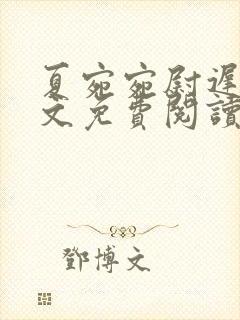 夏宛宛尉遲
文免費閱讀
鄧博文